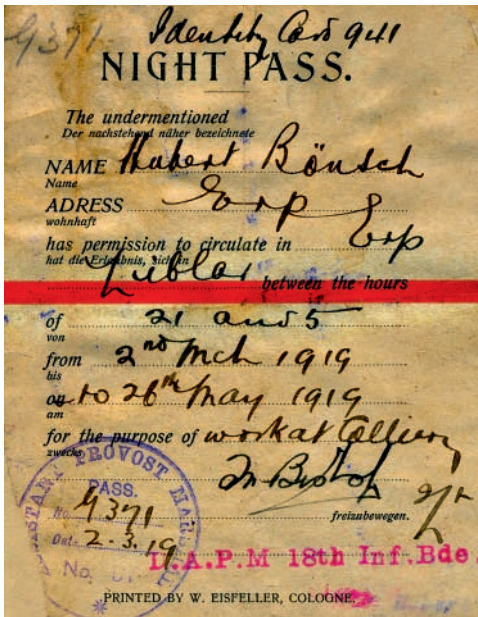 9371
Identity Card 941
NIGHT PASS.
The undermentioned
Der nachstehend näher bezeichnete
NAME Hubert Bönsch
Name
ADRESS Erp
wohnhaft
has permission to circulate in Erp
hat die Erlaubnis, sich in
Liblar between the hours
of 21 and 5
von
from 2nd Mch 1919
bis
on to 26th May 1919
am
for the purpose of work at Colliery
zwecks
freizubewegen.
ASSISTANT PROVOST MARSHAL
PASS.
No. 9371
Date 2.3.19
No.
D.A.P.M 18th Inf. Bde.
PRINTED BY W. EISFELLER, COLOGNE.